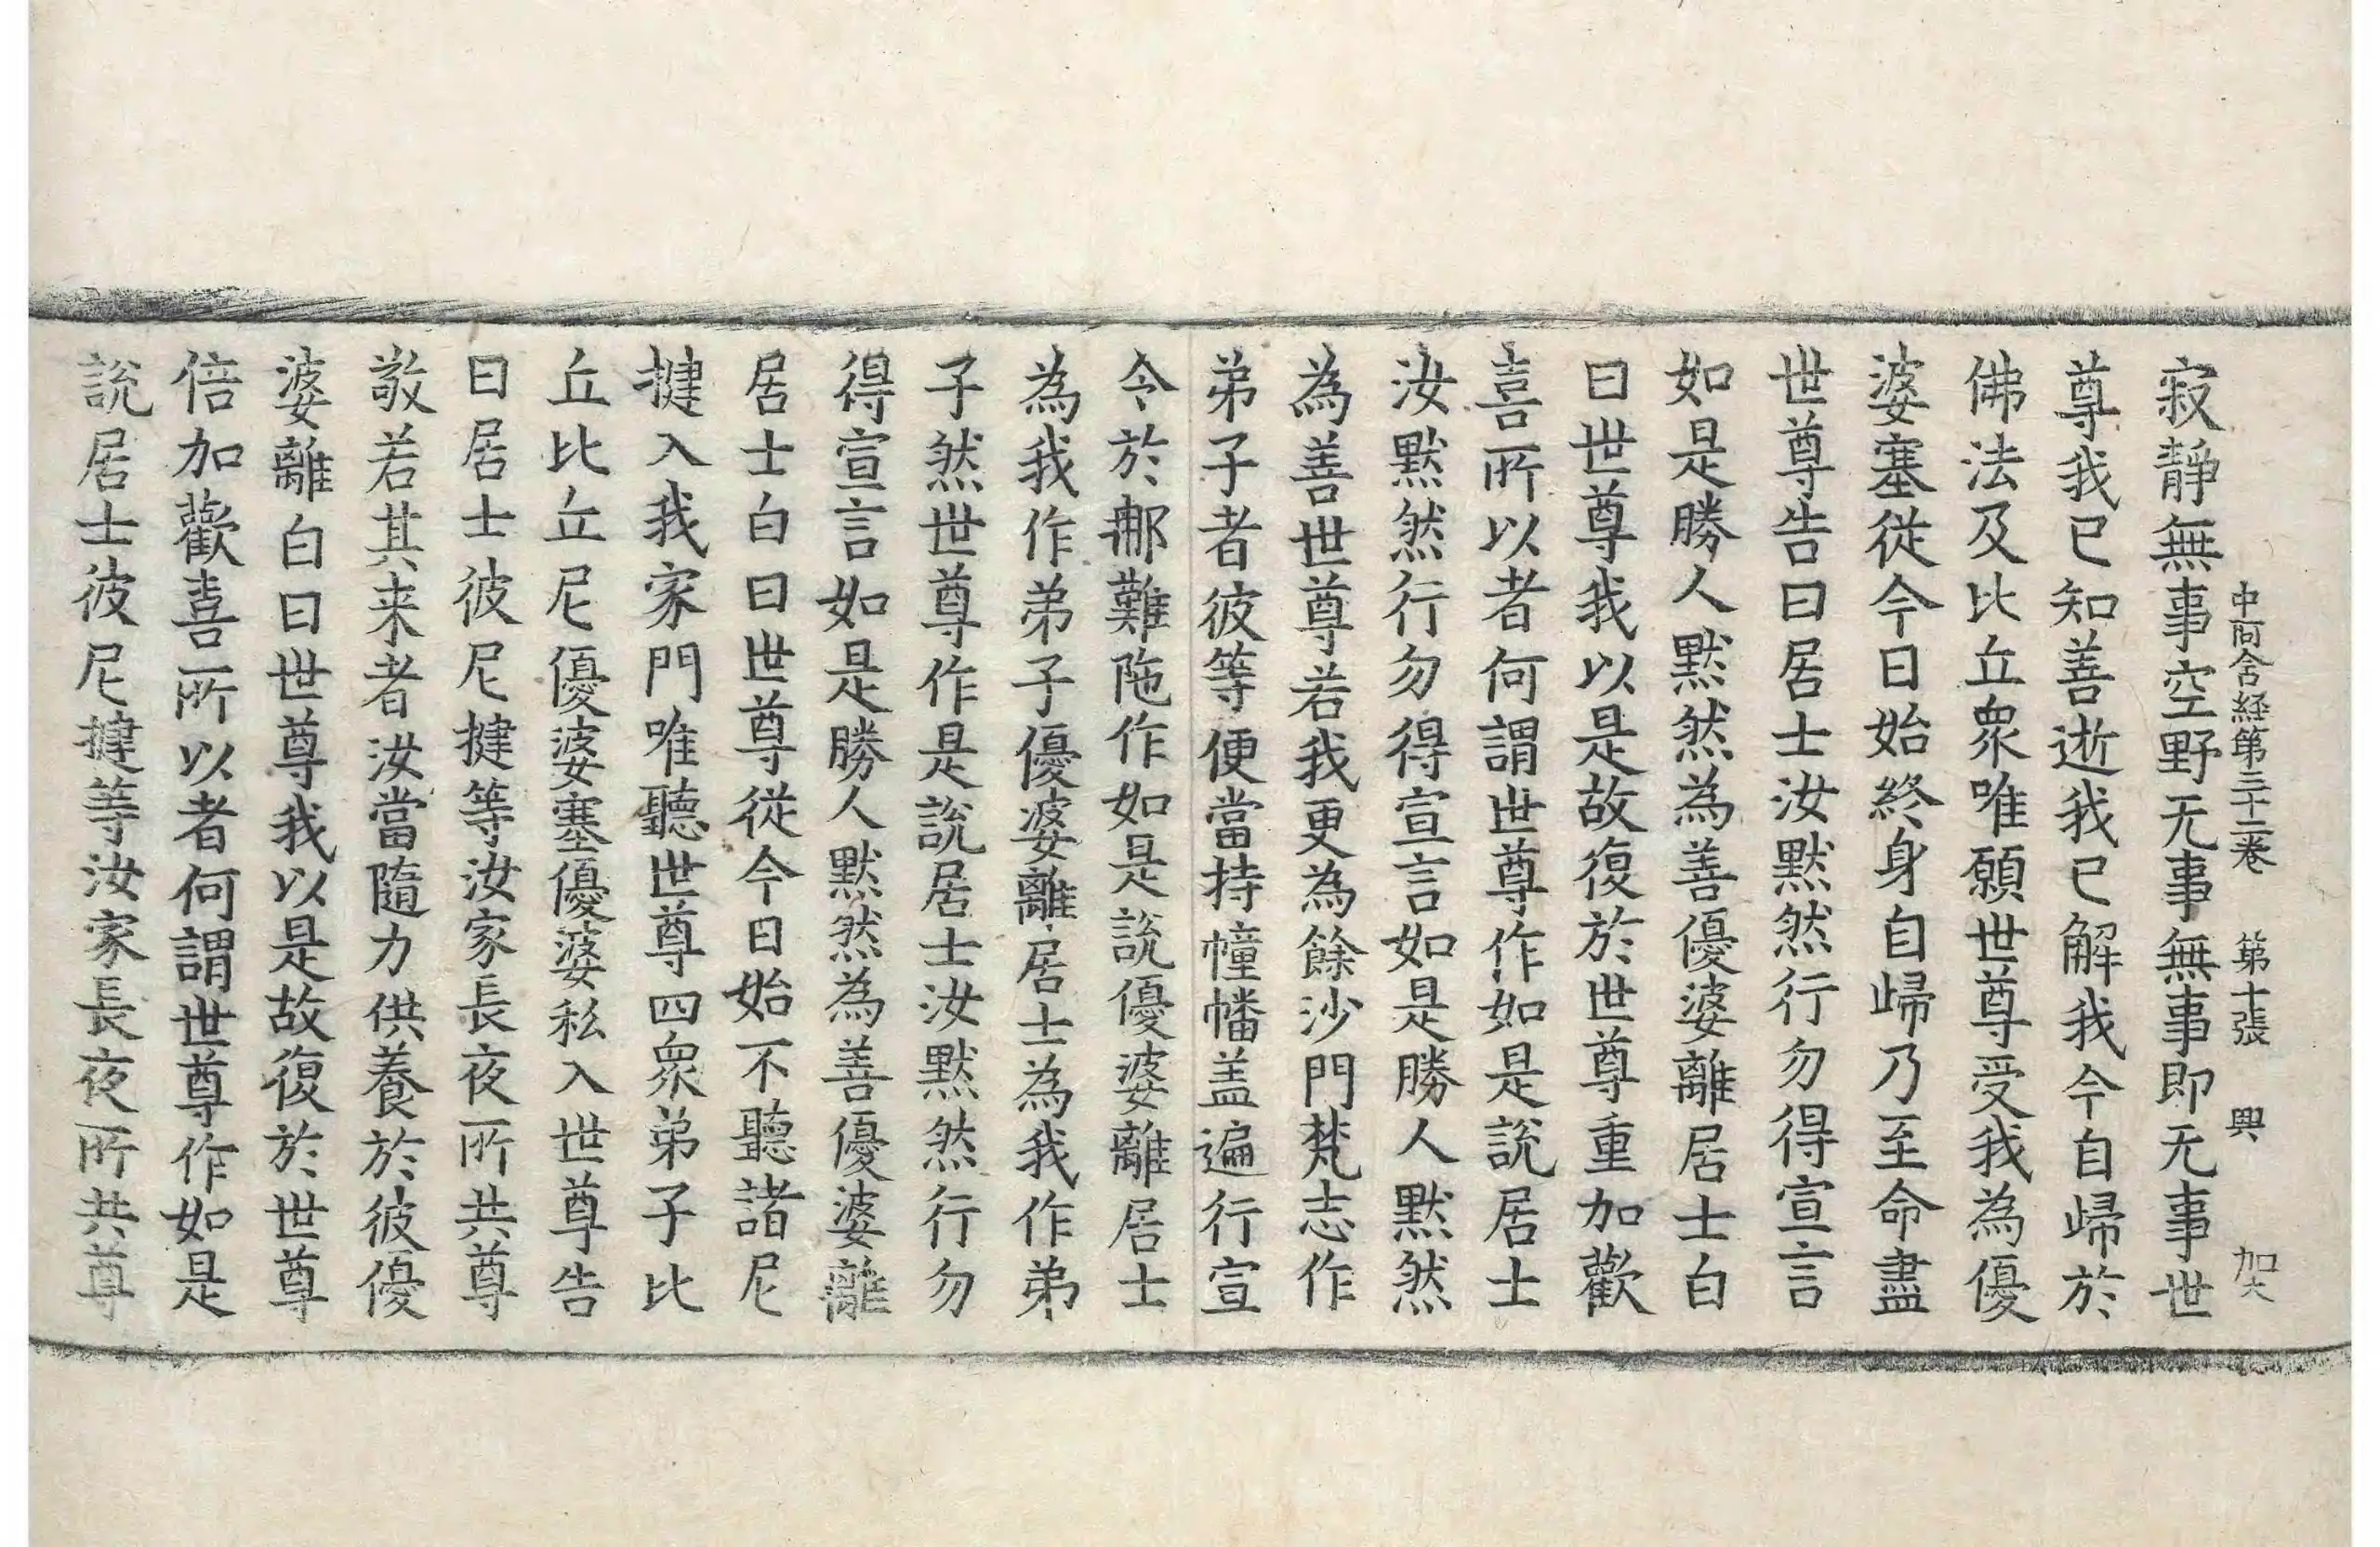 中阿含経第三十二卷 第十張 興 加大
寂靜無事空野无事無事即无事世
尊我已知善逝我已解我今自歸於
佛法及比丘衆唯願世尊受我為優
婆塞從今日始終身自歸乃至命盡
世尊告曰居士汝黙然行勿得宣言
如是勝人黙然為善優婆離居士白
曰世尊我以是故復於世尊重加歡
喜所以者何謂世尊作如是說居士
汝黙然行勿得宣言如是勝人黙然
為善世尊若我更為餘沙門梵志作
弟子者彼等便當持幢幡盖遍行宣
令於那難陁作如是說優婆離居士
為我作弟子優婆離居士為我作弟
子然世尊作是說居士汝黙然行勿
得宣言如是勝人黙然為善優婆離
居士白曰世尊從今日始不聽諸尼
揵入我家門唯聽世尊四衆弟子比
丘比丘尼優婆塞優婆私入世尊告
曰居士彼尼揵等汝家長夜所共尊
敬若其来者汝當隨力供養於彼優
婆離白曰世尊我以是故復於世尊
倍加歡喜所以者何謂世尊作如是
說居士彼尼揵等汝家長夜所共尊